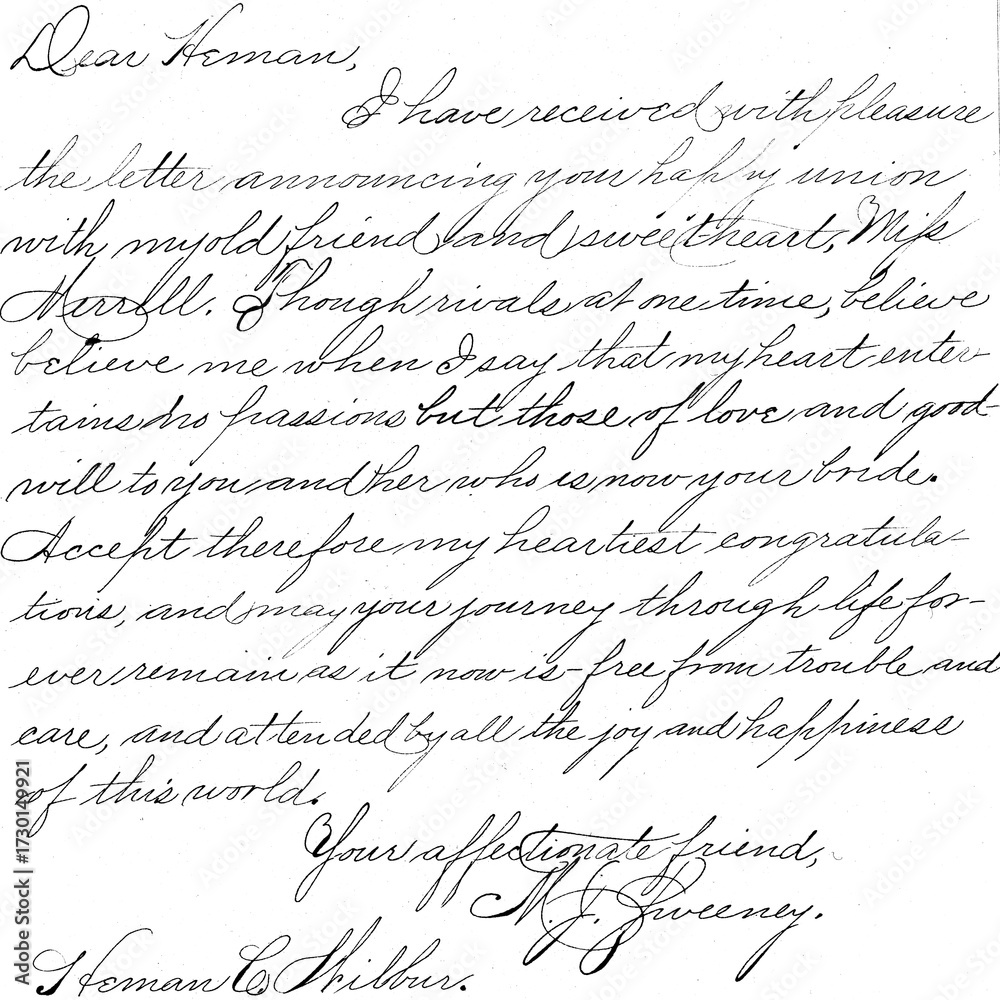 Dear Heman,
I have received with pleasure
the letter announcing your happy union
with my old friend and sweetheart, Miss
Merrill. Though rivals at one time, believe
believe me when I say that my heart enter-
tains no passions but those of love and good-
will to you and her who is now your bride.
Accept therefore my heartiest congratula-
tions, and may your journey through life for-
ever remain as it now is - free from trouble and
care, and attended by all the joy and happiness
of this world.
Your affectionate friend,
M. J. Sweeney.
Heman C. Wilbur.
Adobe Stock | #1730149921